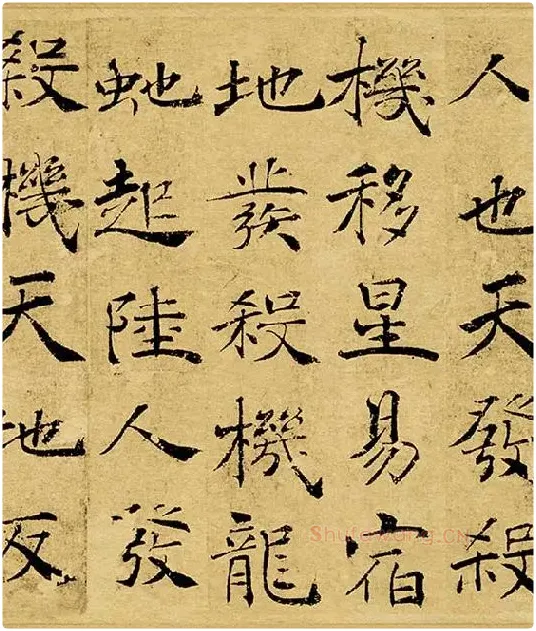 人也天發殺
機移星易宿
地發殺機龍
虵起陸人發
殺機天地反
Shufawang.CN